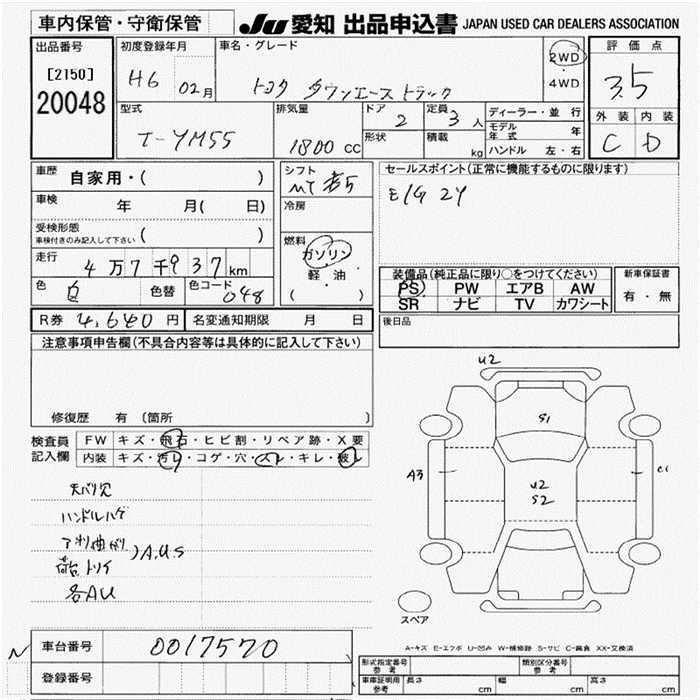 車内保管・守衛保管 JU 愛知 出品申込書 JAPAN USED CAR DEALERS ASSOCIATION
出品番号 [2150] 20048
初度登録年月 H6 02月
車名・グレード トヨタ タウンエーストラック
2WD ・ 4WD
評価点 3.5
外装 C 内装 D
型式 T-YM55
排気量 1800 cc
ドア 2 定員 3 人
形状 積載 kg
ディーラー・並行
モデル年式 年
ハンドル 左・右
車歴 自家用・( )
車検 年 月( 日)
受検形態 車検付きのみ記入して下さい ( )
走行 4万7千937km
色 白 色替 色コード 048
シフト MT 5
冷房
燃料 ガソリン 軽油 ・ ( )
セールスポイント(正常に機能するものに限ります)
E/G 2Y
装備品(純正品に限り○をつけてください)
PS PW エアB AW
SR ナビ TV カワシート
新車保証書 有・無
R券 4,640 円 名変通知期限 月 日
後日品
注意事項申告欄(不具合内容等は具体的に記入して下さい)
修復歴 有 (箇所 )
検査員記入欄
FW キズ・飛石・ヒビ割・リペア跡・X要
内装 キズ・汚レ・コゲ・穴・スレ・キレ・破レ
天バリ穴
ハンドルハゲ
アオリ曲がり
荷台トソイ
)A.U.S
各AU
U2
S1
A3
U2
S2
C1
スペア
A-キズ E-エクボ U-凹み W-補修跡 S-サビ C-腐食 XX-交換済
車台番号 0017570
登録番号
形式指定番号 参考 類別区分番号 参考
車庫証明用 参考 長さ cm 幅 cm 高さ cm